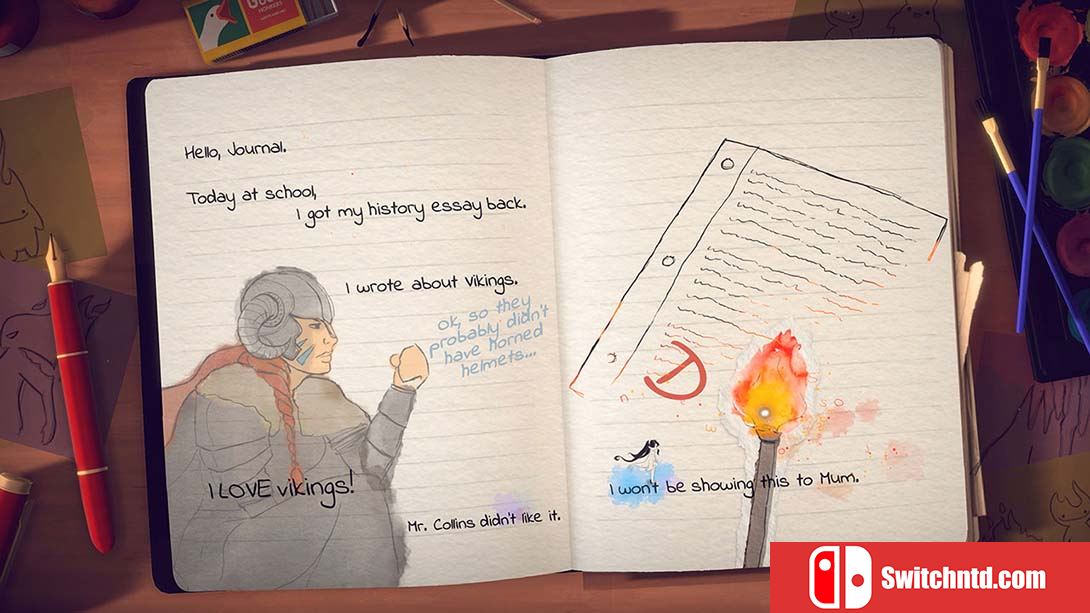 Hello, Journal.
Today at school,
I got my history essay back.
I wrote about vikings.
ok, so they
probably didn't
have horned
helmets...
I LOVE vikings!
Mr. Collins didn't like it.
D
I won't be showing this to Mum.
Switchntd.com